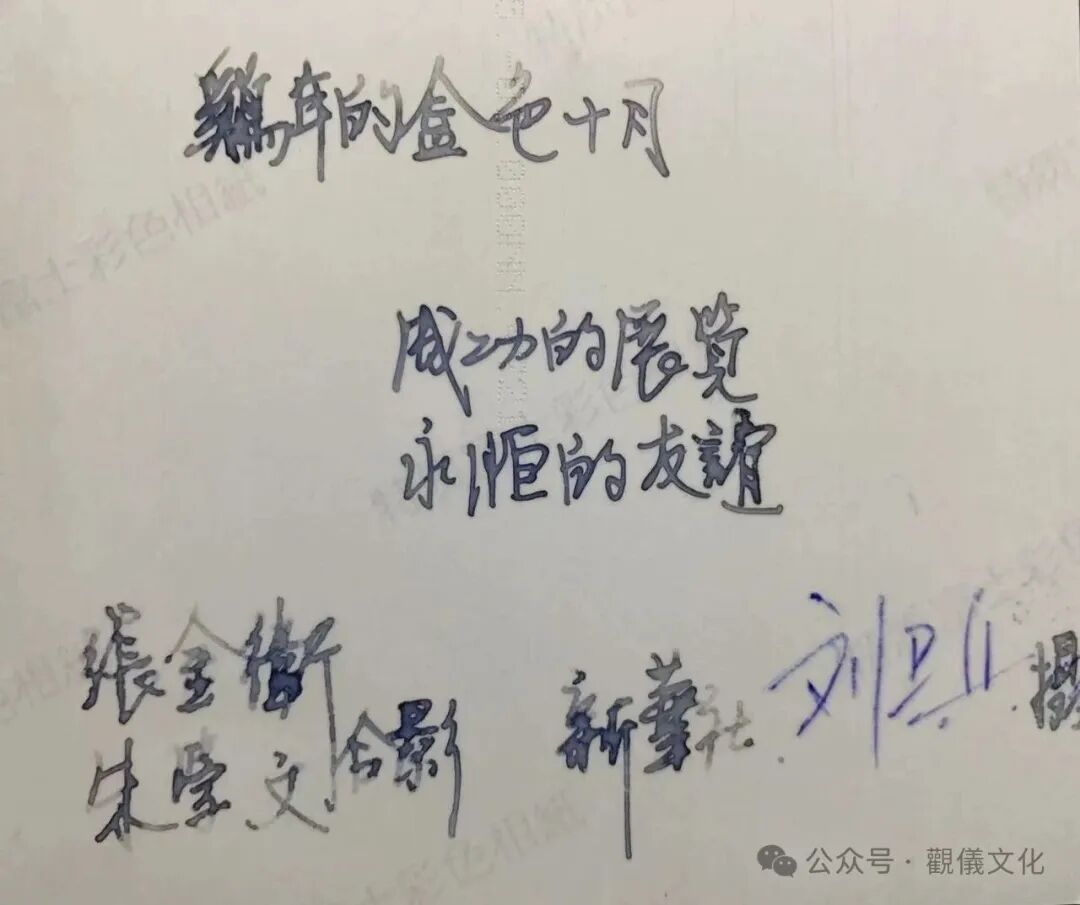 鷄年的金色十月
成功的展覽
永恒的友誼
張金衛
朱榮文合影
新華社 刘 攝
富士彩色相紙
公众号 · 觀儀文化